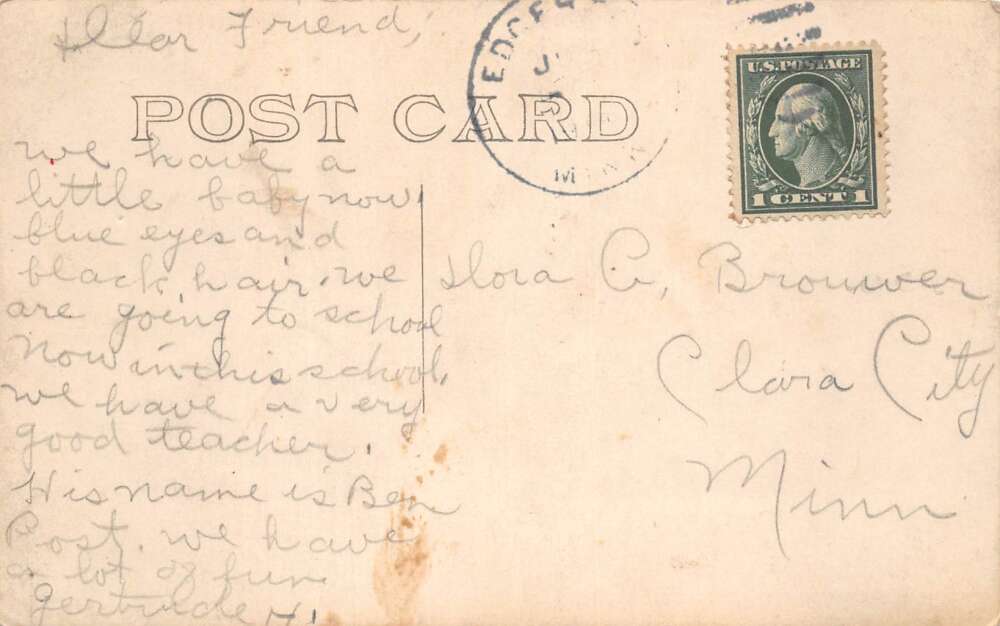 Dear Friend,
POST CARD
we have a
little baby now
blue eyes and
black hair. we
are going to school
now in this school.
we have a very
good teacher.
His name is Ben
Post. we have
a lot of fun
Gertrude H.
EDGER
J
MINN
U.S. POSTAGE
1 CENT 1
Brouwer
Clara City
Minn